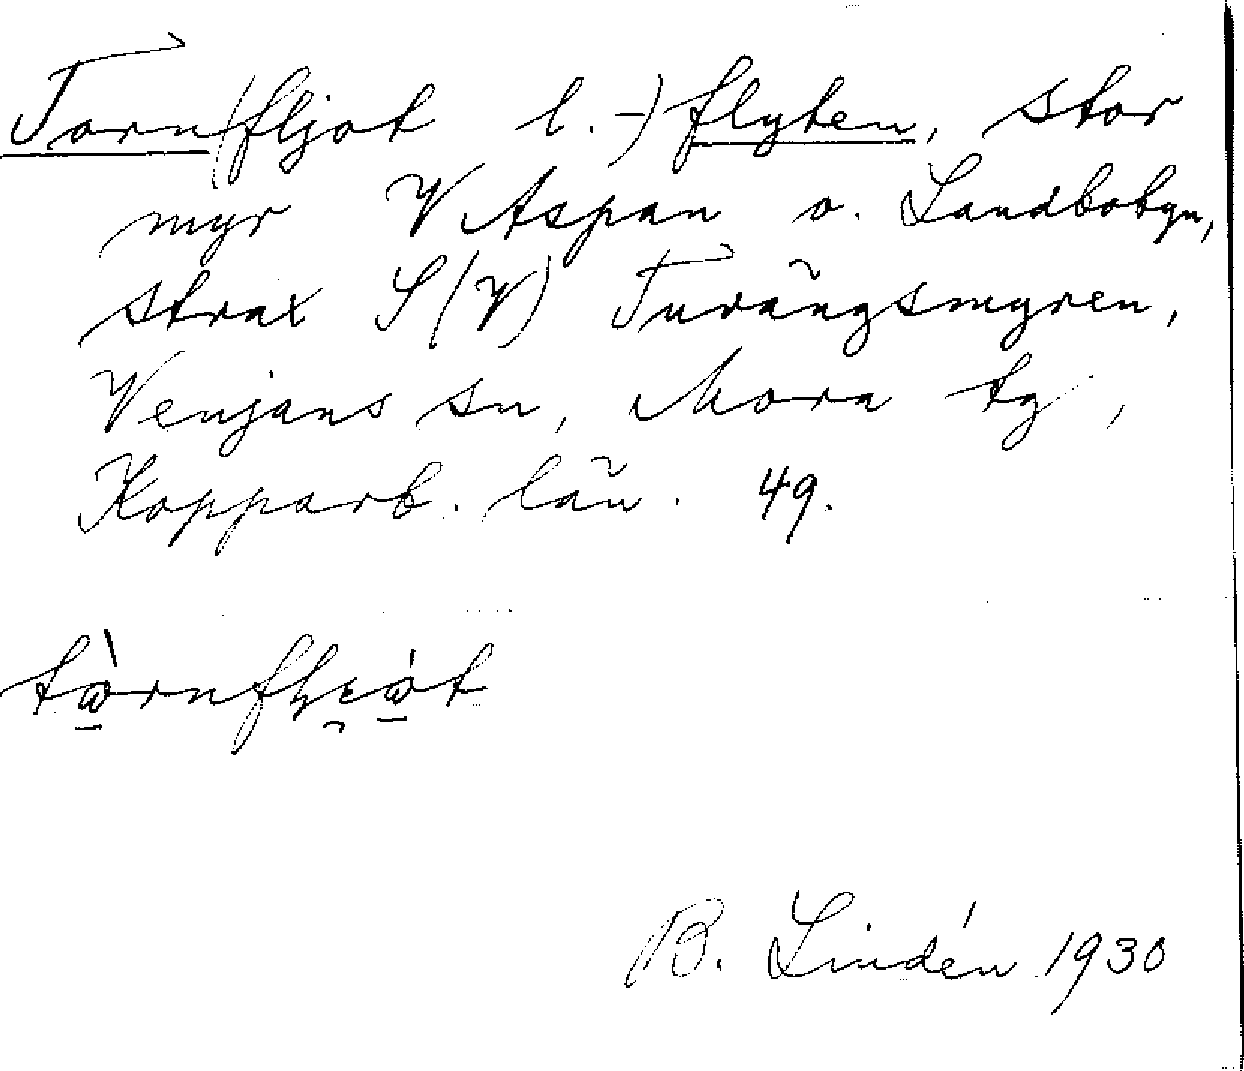 Torn(fljot l. -) flyten, stor
myr V Aspan o. Landbobyn,
strax S (V) Turängsmyren,
Venjans sn, Mora tg,
Kopparb. län. 49.
B. Lindén 1930